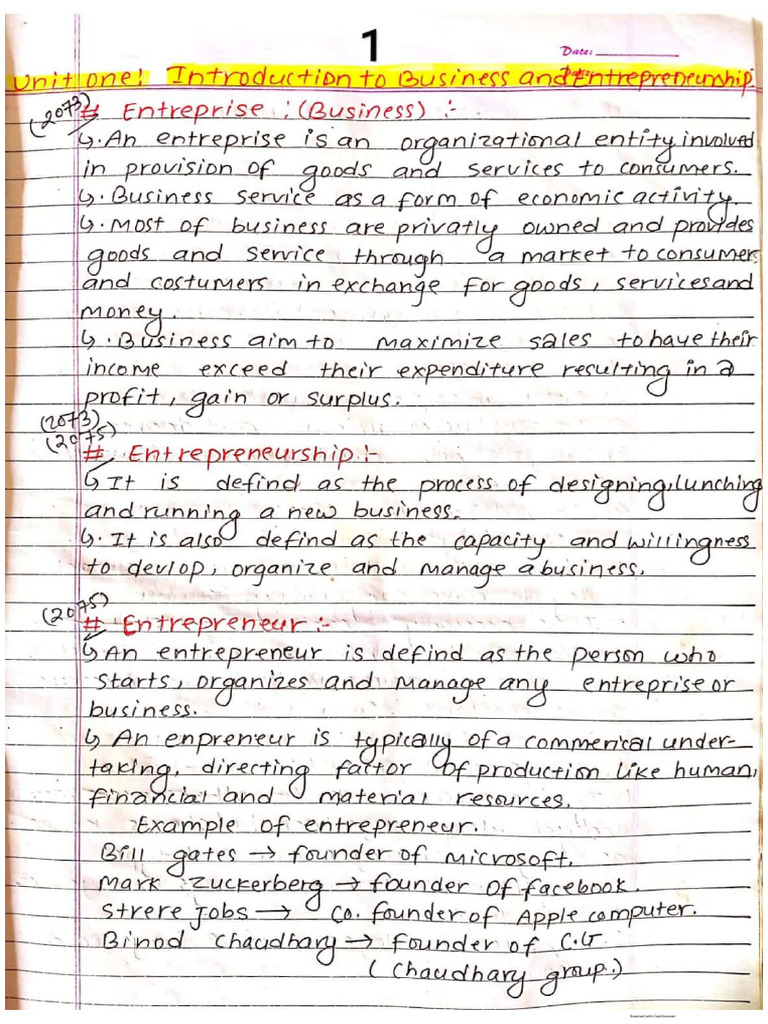 1
Date:
Unit one: Introduction to Business and Entrepreneurship.
(2073)
# Entreprise : (Business) :-
↳. An entreprise is an organizational entity involved
in provision of goods and services to consumers.
↳. Business service as a form of economic activity.
↳. Most of business are privatly owned and provides
goods and service through a market to consumers
and costumers in exchange for goods, services and
money.
↳. Business aim to maximize sales to have their
income exceed their expenditure resulting in a
profit, gain or surplus.
(2073)
(2075)
# Entrepreneurship :-
↳ It is defind as the process of designing, lunching
and running a new business.
↳. It is also defind as the capacity and willingness
to devlop, organize and manage a business.
(2075)
# Entrepreneur :-
↳ An entrepreneur is defind as the person who
starts, organizes and manage any entreprise or
business.
↳ An enpreneur is typically of a commerical under-
taking, directing factor of production like human,
financial and material resources.
Example of entrepreneur.
Bill gates → founder of microsoft.
Mark Zuckerberg → founder of facebook.
Strere jobs → Co. founder of Apple computer.
Binod chaudhary → founder of C.G
(Chaudhary group.)
Scanned with CamScanner